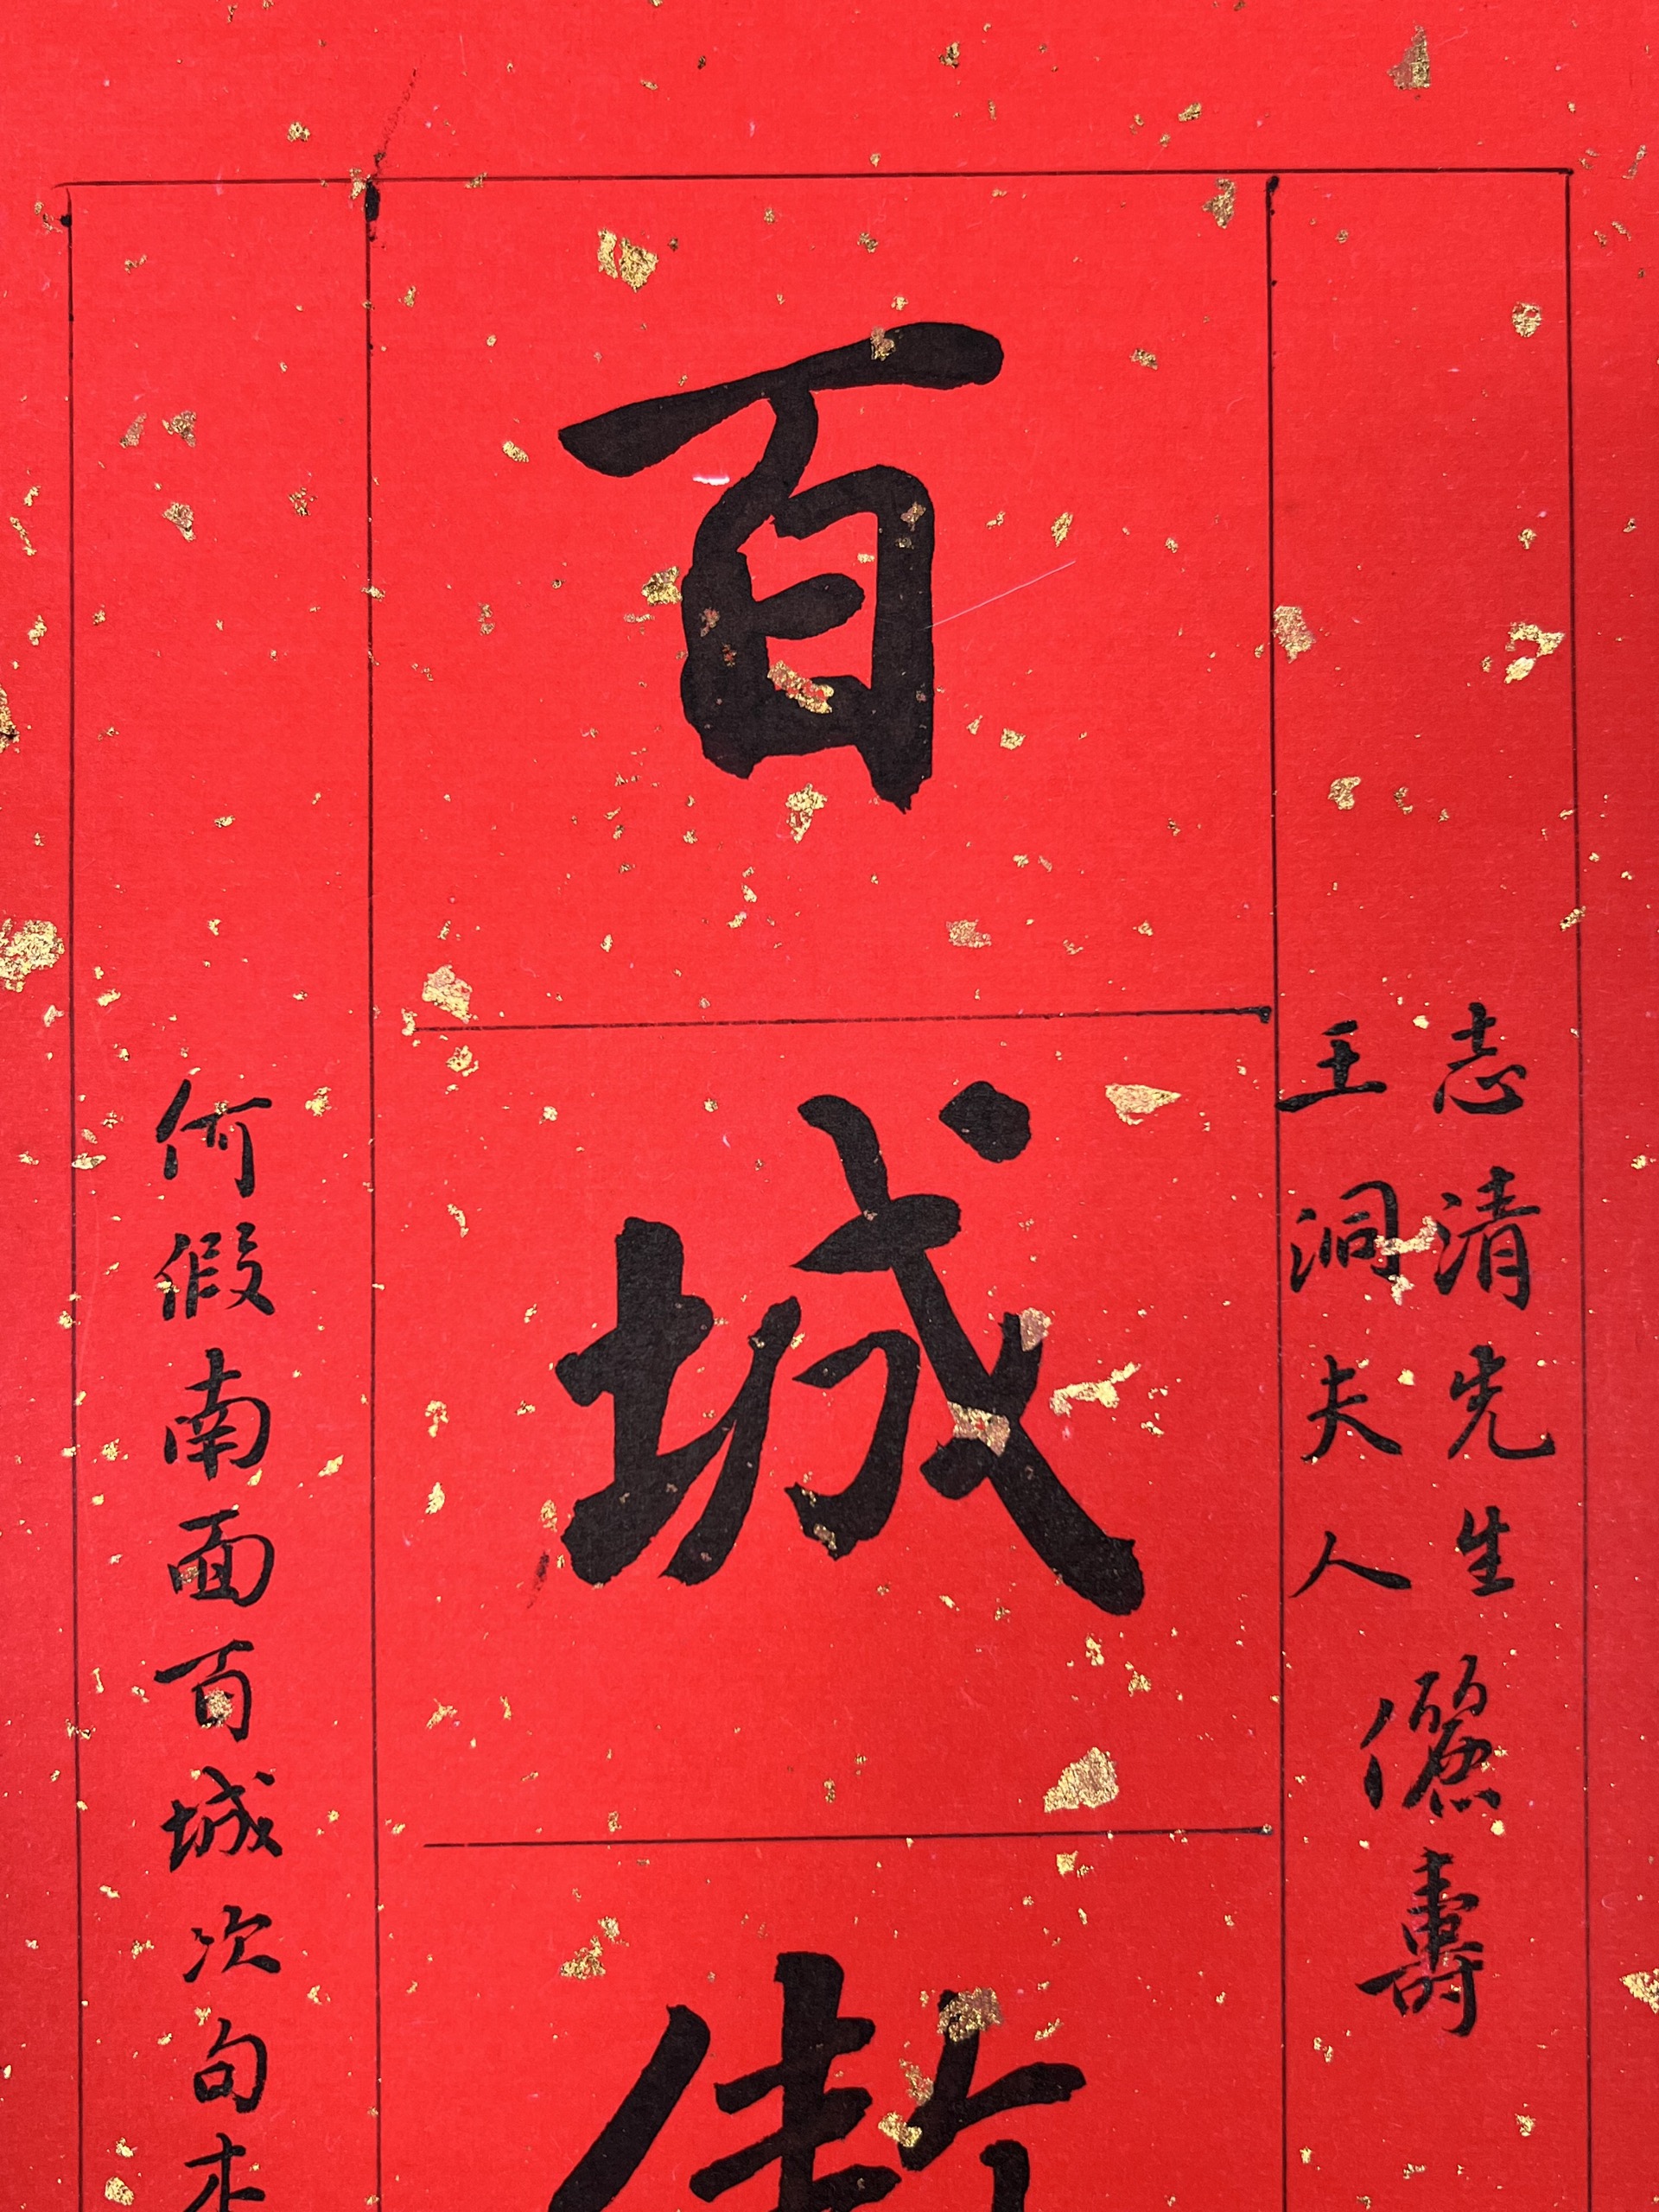 志清先生
王洞夫人
儷壽
百城
何假南面百城次句本